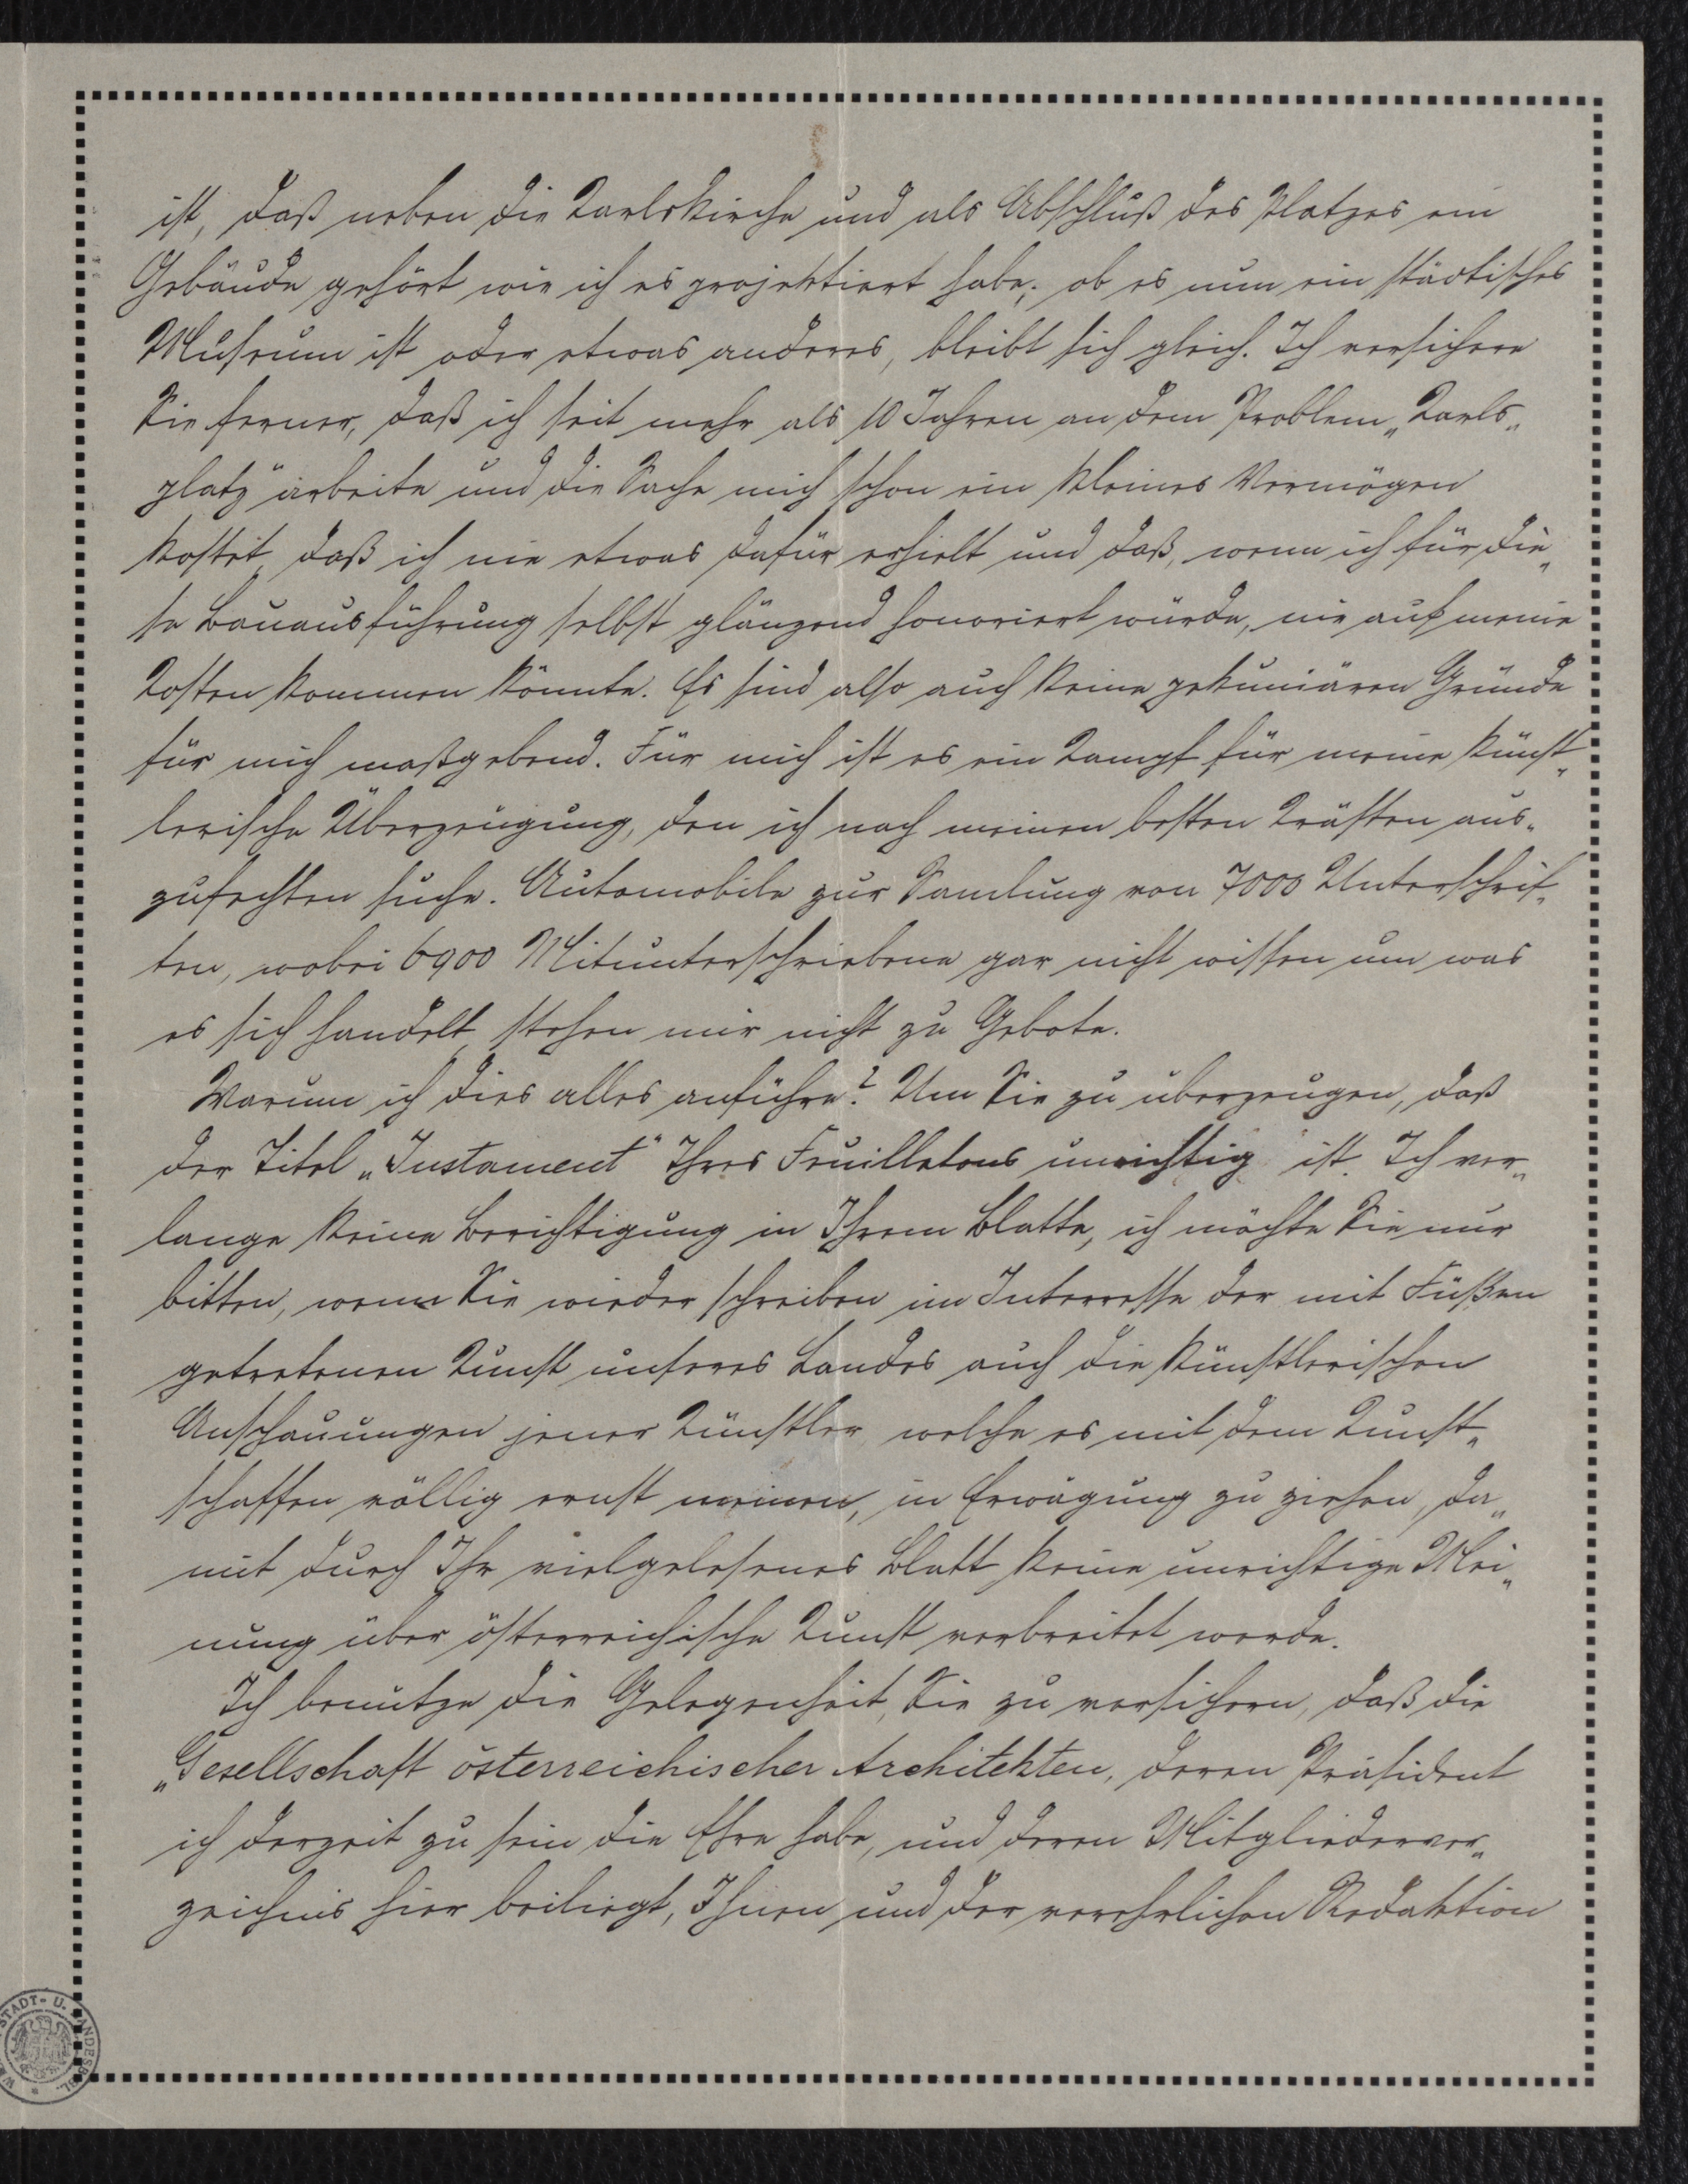 ist, daß neben die Karlskirche und als Abschluß des Platzes ein
Gebäude gehört wie ich es projektiert habe; ob es nun ein städtisches
Museum ist oder etwas anderes, bleibt sich gleich. Ich versichere
Sie ferner, daß ich seit mehr als 10 Jahren an dem Problem „Karls„
platz" arbeite und die Sache mich schon ein kleines Vermögen
kostet, daß ich nie etwas dafür erhielt und daß, wenn ich für die„
se Bauausführung selbst glänzend honoriert würde, nie auf meine
Kosten kommen könnte. Es sind also auch keine pekuniären Gründe
für mich maßgebend. Für mich ist es ein Kampf für meine künst„
lerische Überzeugung, den ich nach meinen besten Kräften aus„
zufechten suche. Automobile zur Samlung von 7000 Unterschrif„
ten, wobei 6900 Mitunterschriebene gar nicht wissen um was
es sich handelt, stehen mir nicht zu Gebote.
Warum ich dies alles anführe? Um Sie zu überzeugen, daß
der Titel „Justament" Ihres Feuilletons unrichtig ist. Ich ver„
lange keine Berichtigung in Ihrem Blatte, ich möchte Sie nur
bitten, wenn Sie wieder schreiben im Interresse der mit Füßen
getretenen Kunst unseres Landes auch die künstlerischen
Anschauungen jener Künstler, welche es mit dem Kunst„
schaffen völlig ernst meinen, in Erwägung zu ziehen, da„
mit durch Ihr vielgelesenes Blatt keine unrichtige Mei„
nung über österreichische Kunst verbreitet werde.
Ich benütze die Gelegenheit, Sie zu versichern, daß die
„Gesellschaft österreichischer Architekten, deren Präsident
ich derzeit zu sein die Ehre habe, und deren Mitgliederver„
zeichnis hier beiliegt, Ihnen und der verehrlichen Redaktion
STADT- U. LANDESBIBL.